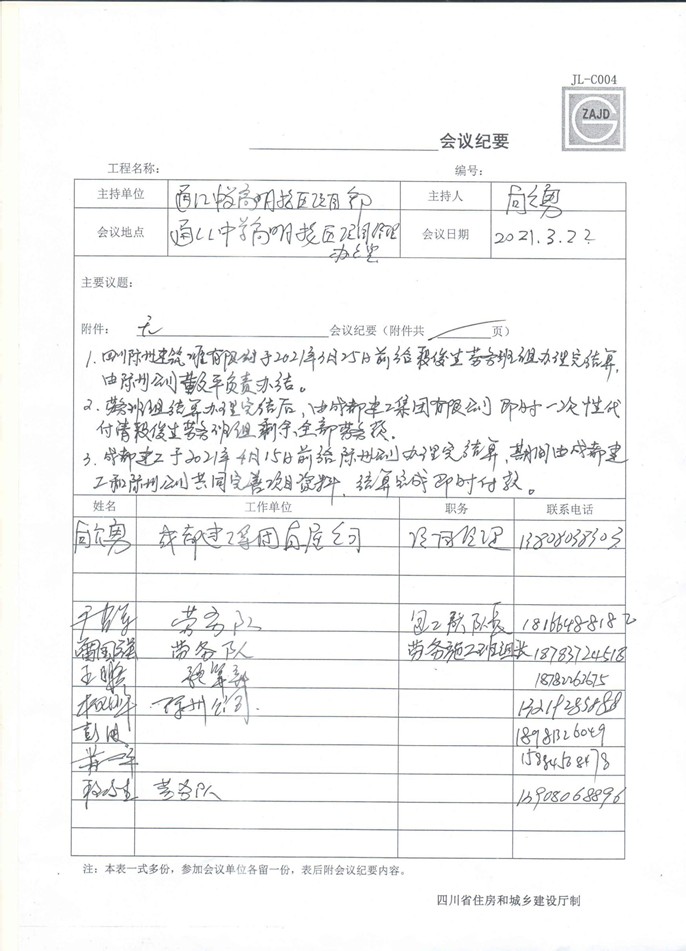 JL-C004
ZAJD
会议纪要
工程名称： 编号：
主持单位 通江中学高明校区项目部 主持人
会议地点 通江中学高明校区项目经理 会议日期 2021.3.22
办公室
主要议题：
附件： 无 会议纪要（附件共 页）
1. 四川陈州建筑 有限 于2021年3月25日前给 俊生劳务班组办理完结算，
由陈州公司 平负责办结。
2. 劳务班组结算办理完结后，由成都建工集团有限公司即时一次性代
付清 俊生劳务班组剩余全部劳务款。
3. 成都建工于2021年4月15日前给陈州公司办理完结算，期间由成都建
工和陈州公司共同完善项目资料，结算完成即时付款。
姓名 工作单位 职务 联系电话
成都建工集团 公司 项目经理 13808038303
劳务队 队长 18166488182
劳务队 劳务施工班组长 18783724518
王 18782263675
陈州公司. 13219285888
彭 18981326049
15884568478
劳务队 13908068896
注：本表一式多份，参加会议单位各留一份，表后附会议纪要内容。
四川省住房和城乡建设厅制